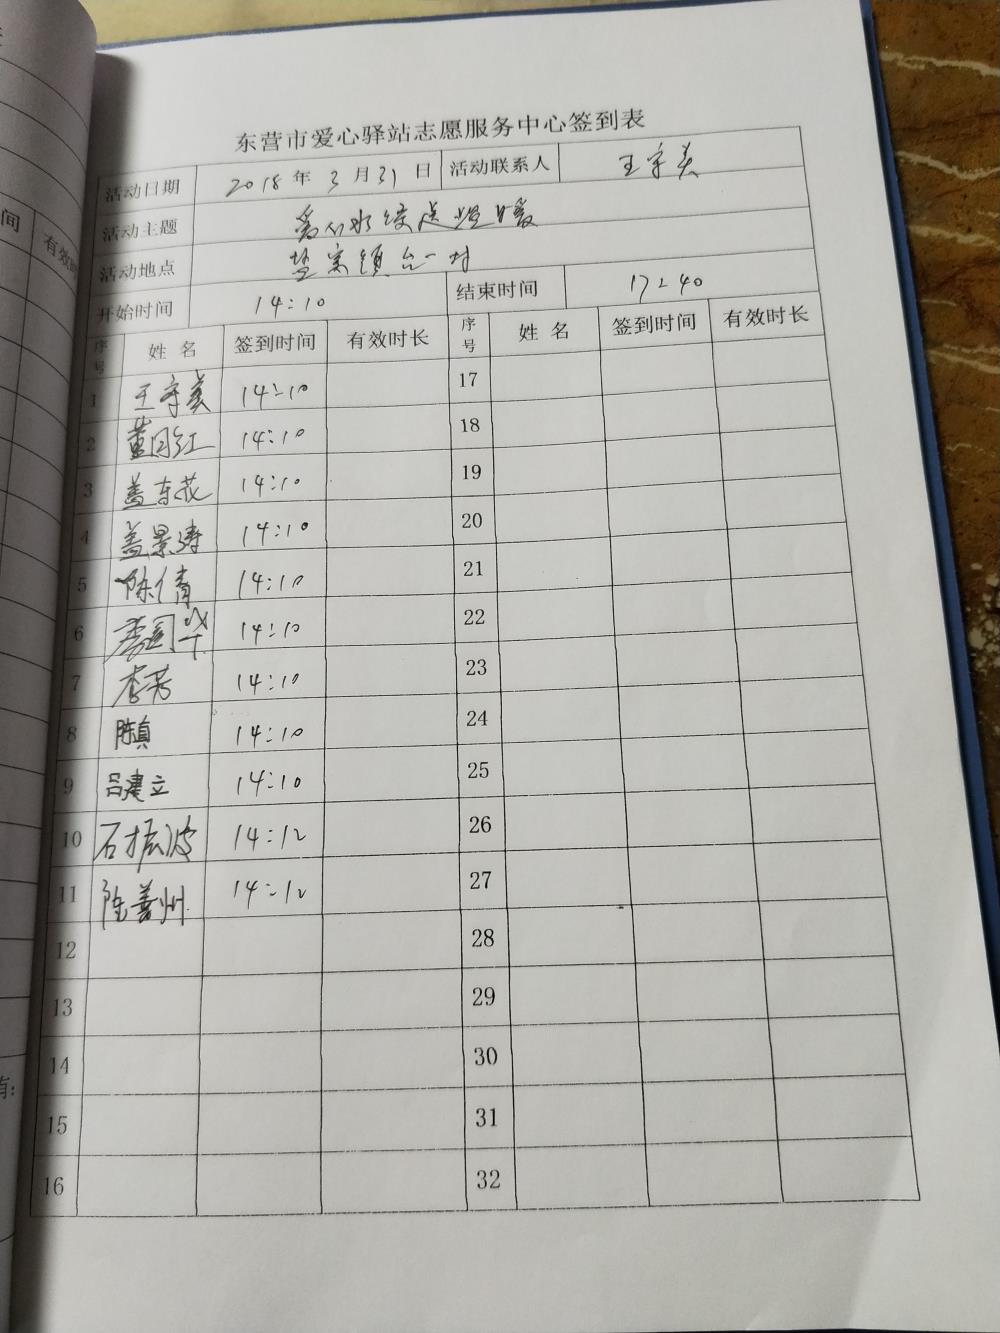 东营市爱心驿站志愿服务中心签到表
活动日期 2018年3月31日 活动联系人 王守美
活动主题
活动地点
开始时间 14:10 结束时间 17:40
序号 姓名 签到时间 有效时长 序号 姓名 签到时间 有效时长
1 王守美 14:10 17
2 董月红 14:10 18
3 盖东花 14:10 19
4 盖景涛 14:10 20
5 陈倩 14:10 21
6 14:10 22
7 李芳 14:10 23
8 陈真 14:10 24
9 吕建立 14:10 25
10 石振波 14:12 26
11 隆善州 14:12 27
12 28
13 29
14 30
15 31
16 32
间
有效时